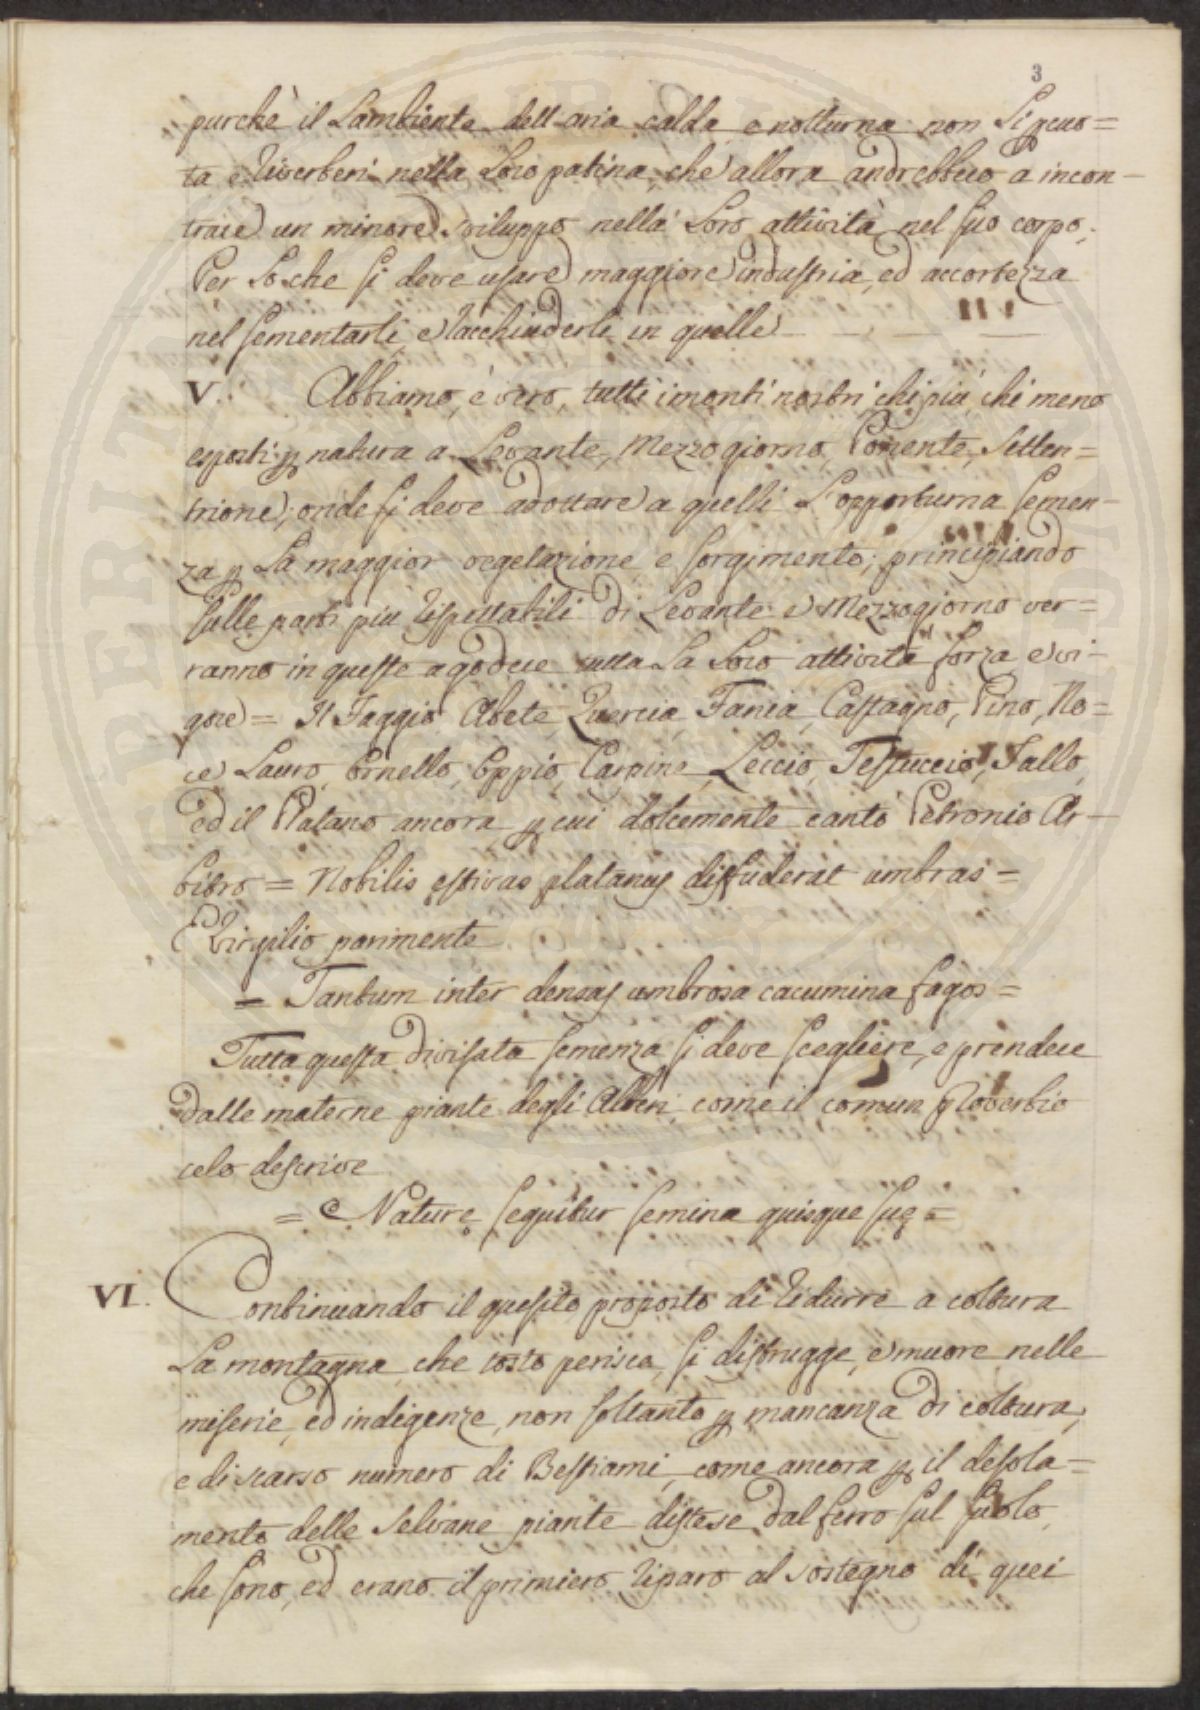 3
purchè il Lambiente dell'aria calda e notturna non Si percuo=
ta e Riverberi nella Loro patina, che allora andrebbero a incon-
trare un minore sviluppo nella Loro attività nel suo corpo.
Per Lo che si deve usare maggiore industria, ed accortezza
nel sementarli e racchiuderli in quelle
V. Abbiamo, è vero, tutti i monti nostri chi più, chi meno
esposti p natura a Levante, Mezzogiorno, Ponente, Setten=
trione; onde si deve adottare a quelli L'opportuna semen-
za p La maggior vegetazione e sorgimento; principiando
sulle parti più Rispettabili di Levante e Mezzogiorno ver=
ranno in queste a godere tutta La Loro attività forza e vi-
gore = Il Faggio Abete, Quercia, Fania, Castagno, Pino, No=
ce, Lauro, Ornello, Oppio, Carpine, Leccio, Testuccio, Tallo,
ed il Platano ancora p cui dolcemente cantò Petronio Ar-
bitro = Nobilis estivas platanus diffuderat umbras =
Virgilio parimente
= Tantum inter densas umbrosa cacumina fagos =
Tutta questa divisata semenza si deve scegliere, e prendere
dalle materne piante degli Alberi come il comun proverbio
celo descrive
= Naturę sequitur semina quisque suę =
VI. Continuando il quesito proposto di Ridurre a coltura
La montagna che tosto perisca, si distrugge, e muore nelle
miserie, ed indigenze, non soltanto p mancanza di coltura,
e di scarso numero di Bestiami, come ancora p il desola=
mento delle Selvane piante distese dal ferro sul suolo,
che sono, ed erano il primiero Riparo al sostegno di quei